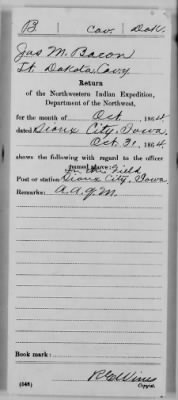 B | Cav. | Dak.
Jas M. Bacon
Lt. Dakota Cavy
Return
of the Northwestern Indian Expedition,
Department of the Northwest,
for the month of Oct, 1864
dated Sioux City, Iowa
Oct. 31, 1864
shows the following with regard to the officer
named above:
In the Field
Post or station: Sioux City, Iowa
Remarks: A.A.Q.M.
Book mark:
(548)
Copyist.